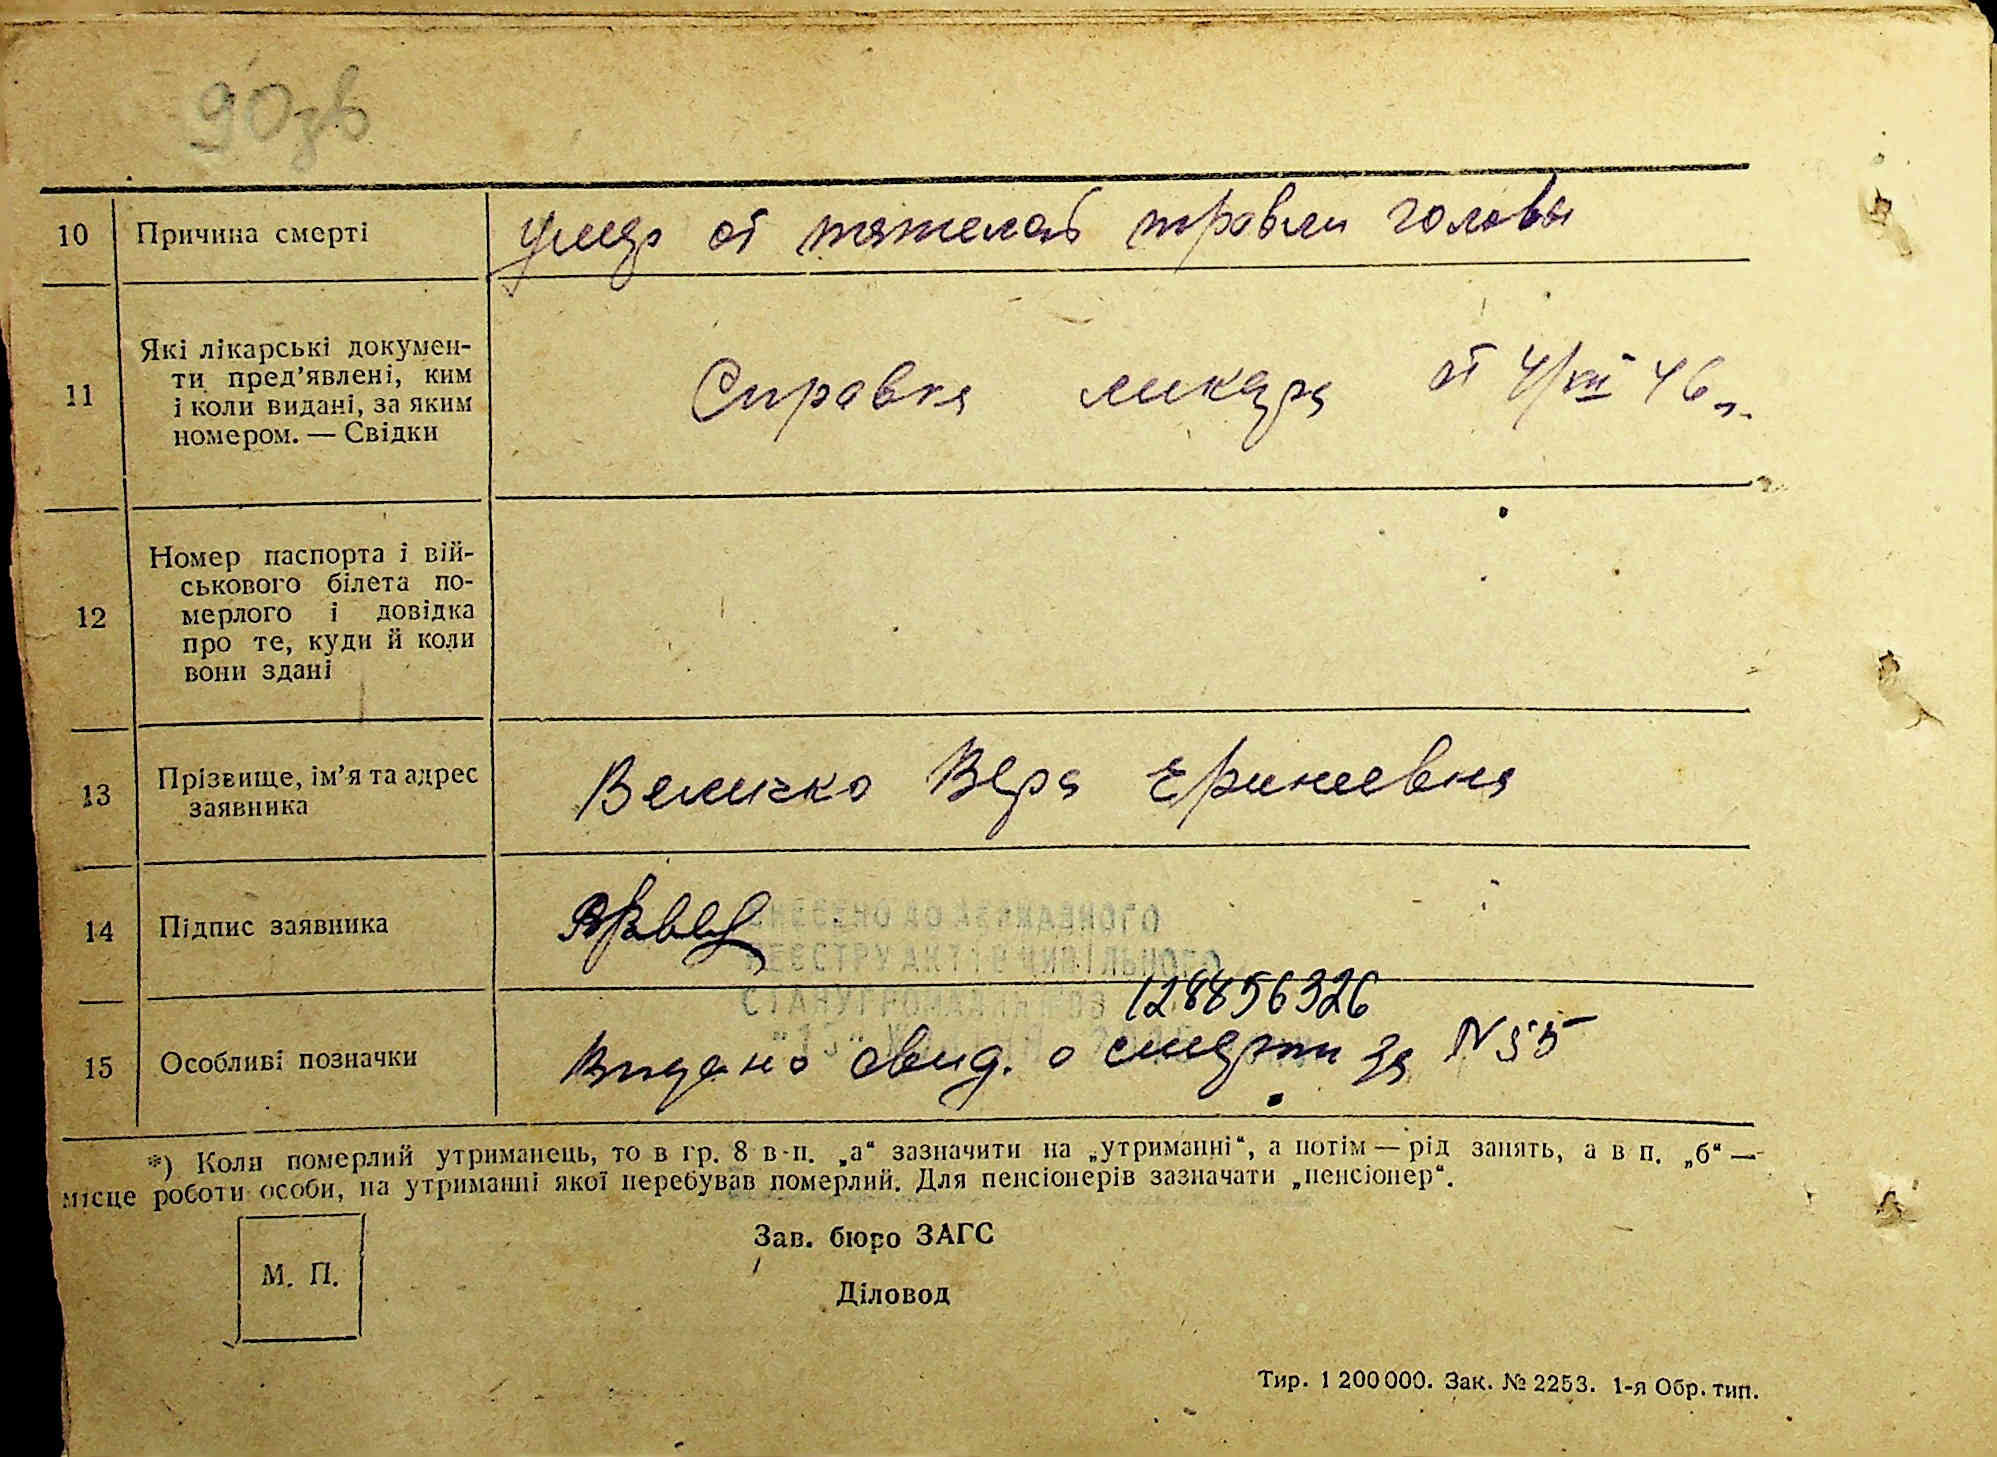 90зв
10 Причина смерті умер от тяжелой травли головы
11 Які лікарські докумен-
ти пред’явлені, ким
і коли видані, за яким
номером. — Свідки
Справка ликаря от 4/VII 46 г.
12 Номер паспорта і вій-
ськового білета по-
мерлого і довідка
про те, куди й коли
вони здані
13 Прізвище, ім’я та адрес
заявника
Величко Вера Ериневна
14 Підпис заявника
ВНЕСЕНО ДО ДЕРЖАВНОГО
РЕЄСТРУ АКТІВ ЦИВІЛЬНОГО
СТАНУ ГРОМАДЯН
128856326
15 Особливі позначки Видано свид. о смерти за N 55
*) Коли померлий утриманець, то в гр. 8 в п. „а“ зазначити на „утриманні“, а потім — рід занять, а в п. „б“ —
місце роботи особи, на утриманні якої перебував померлий. Для пенсіонерів зазначати „пенсіонер“.
Зав. бюро ЗАГС
М. П.
Діловод
Тир. 1 200 000. Зак. № 2253. 1-я Обр. тип.